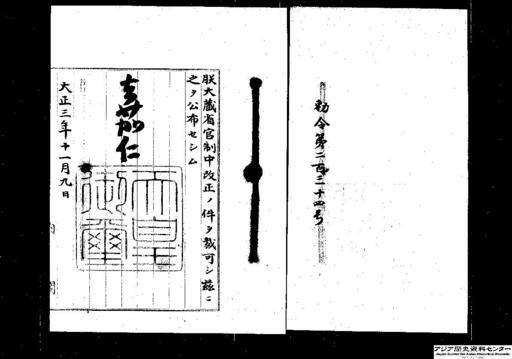 勅令第二百三十四号
朕大蔵省官制中改正ノ件ヲ裁可シ茲ニ
之ヲ公布セシム
嘉仁
天皇
御璽
大正三年十一月九日
アジア歴史資料センター
Japan Center for Asian Historical Records